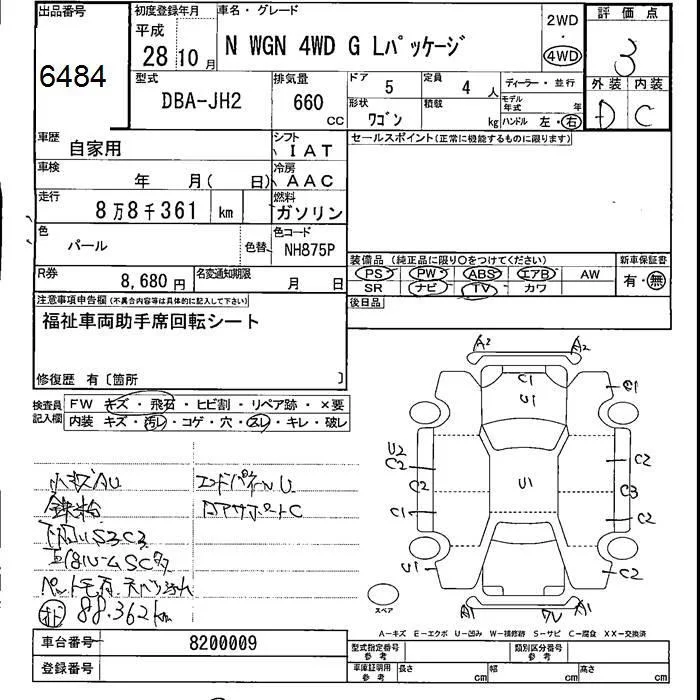 出品番号 初度登録年月 車名・グレード 評価点
6484 平成 28 10月 N WGN 4WD G Lパッケージ 2WD ・ 4WD 3
外装 内装
D C
型式 排気量 ドア 5 定員 4人 ディーラー・並行
DBA-JH2 660 CC 形状 ワゴン 積載 kg モデル年式 年 ハンドル 左・右
車歴 自家用 シフト IAT セールスポイント(正常に機能するものに限ります)
車検 年 月( 日) 冷房 AAC
走行 8万8千361 km 燃料 ガソリン
色 パール 色替 色コード NH875P
装備品(純正品に限り○をつけてください) 新車保証書
PS PW ABS エアB AW 有・無
SR ナビ TV カワ
後日品
R券 8,680円 名変通知期限 月 日
注意事項申告欄(不具合内容等は具体的に記入して下さい)
福祉車両助手席回転シート
修復歴 有〔箇所 〕
検査員記入欄 FW キズ・飛石・ヒビ割・リペア跡・×要
内装 キズ・汚レ・コゲ・穴・スレ・キレ・破レ
小キズAU エンドパネルU
S3C3
88.362km
A2 A2
C1
U1
C1
U2
C2 C2
C2 U1 C3
C1 C2
U1 C2
A1 A1
スペア
A−キズ E−エクボ U−凹み W−補修跡 S−サビ C−腐食 XX−交換済
車台番号 8200009
登録番号
型式指定番号 参考 類別区分番号 参考
車庫証明用 参考 長さ cm 幅 cm 高さ cm